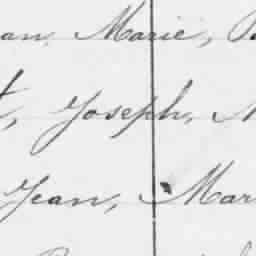 an, Marie,
Joseph,
Jean, Mar